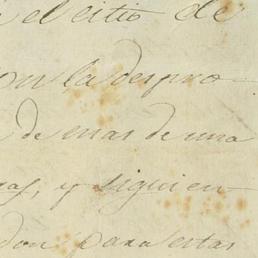 el citio de
con la despro
de enas de una
as, y siguien
don para estas